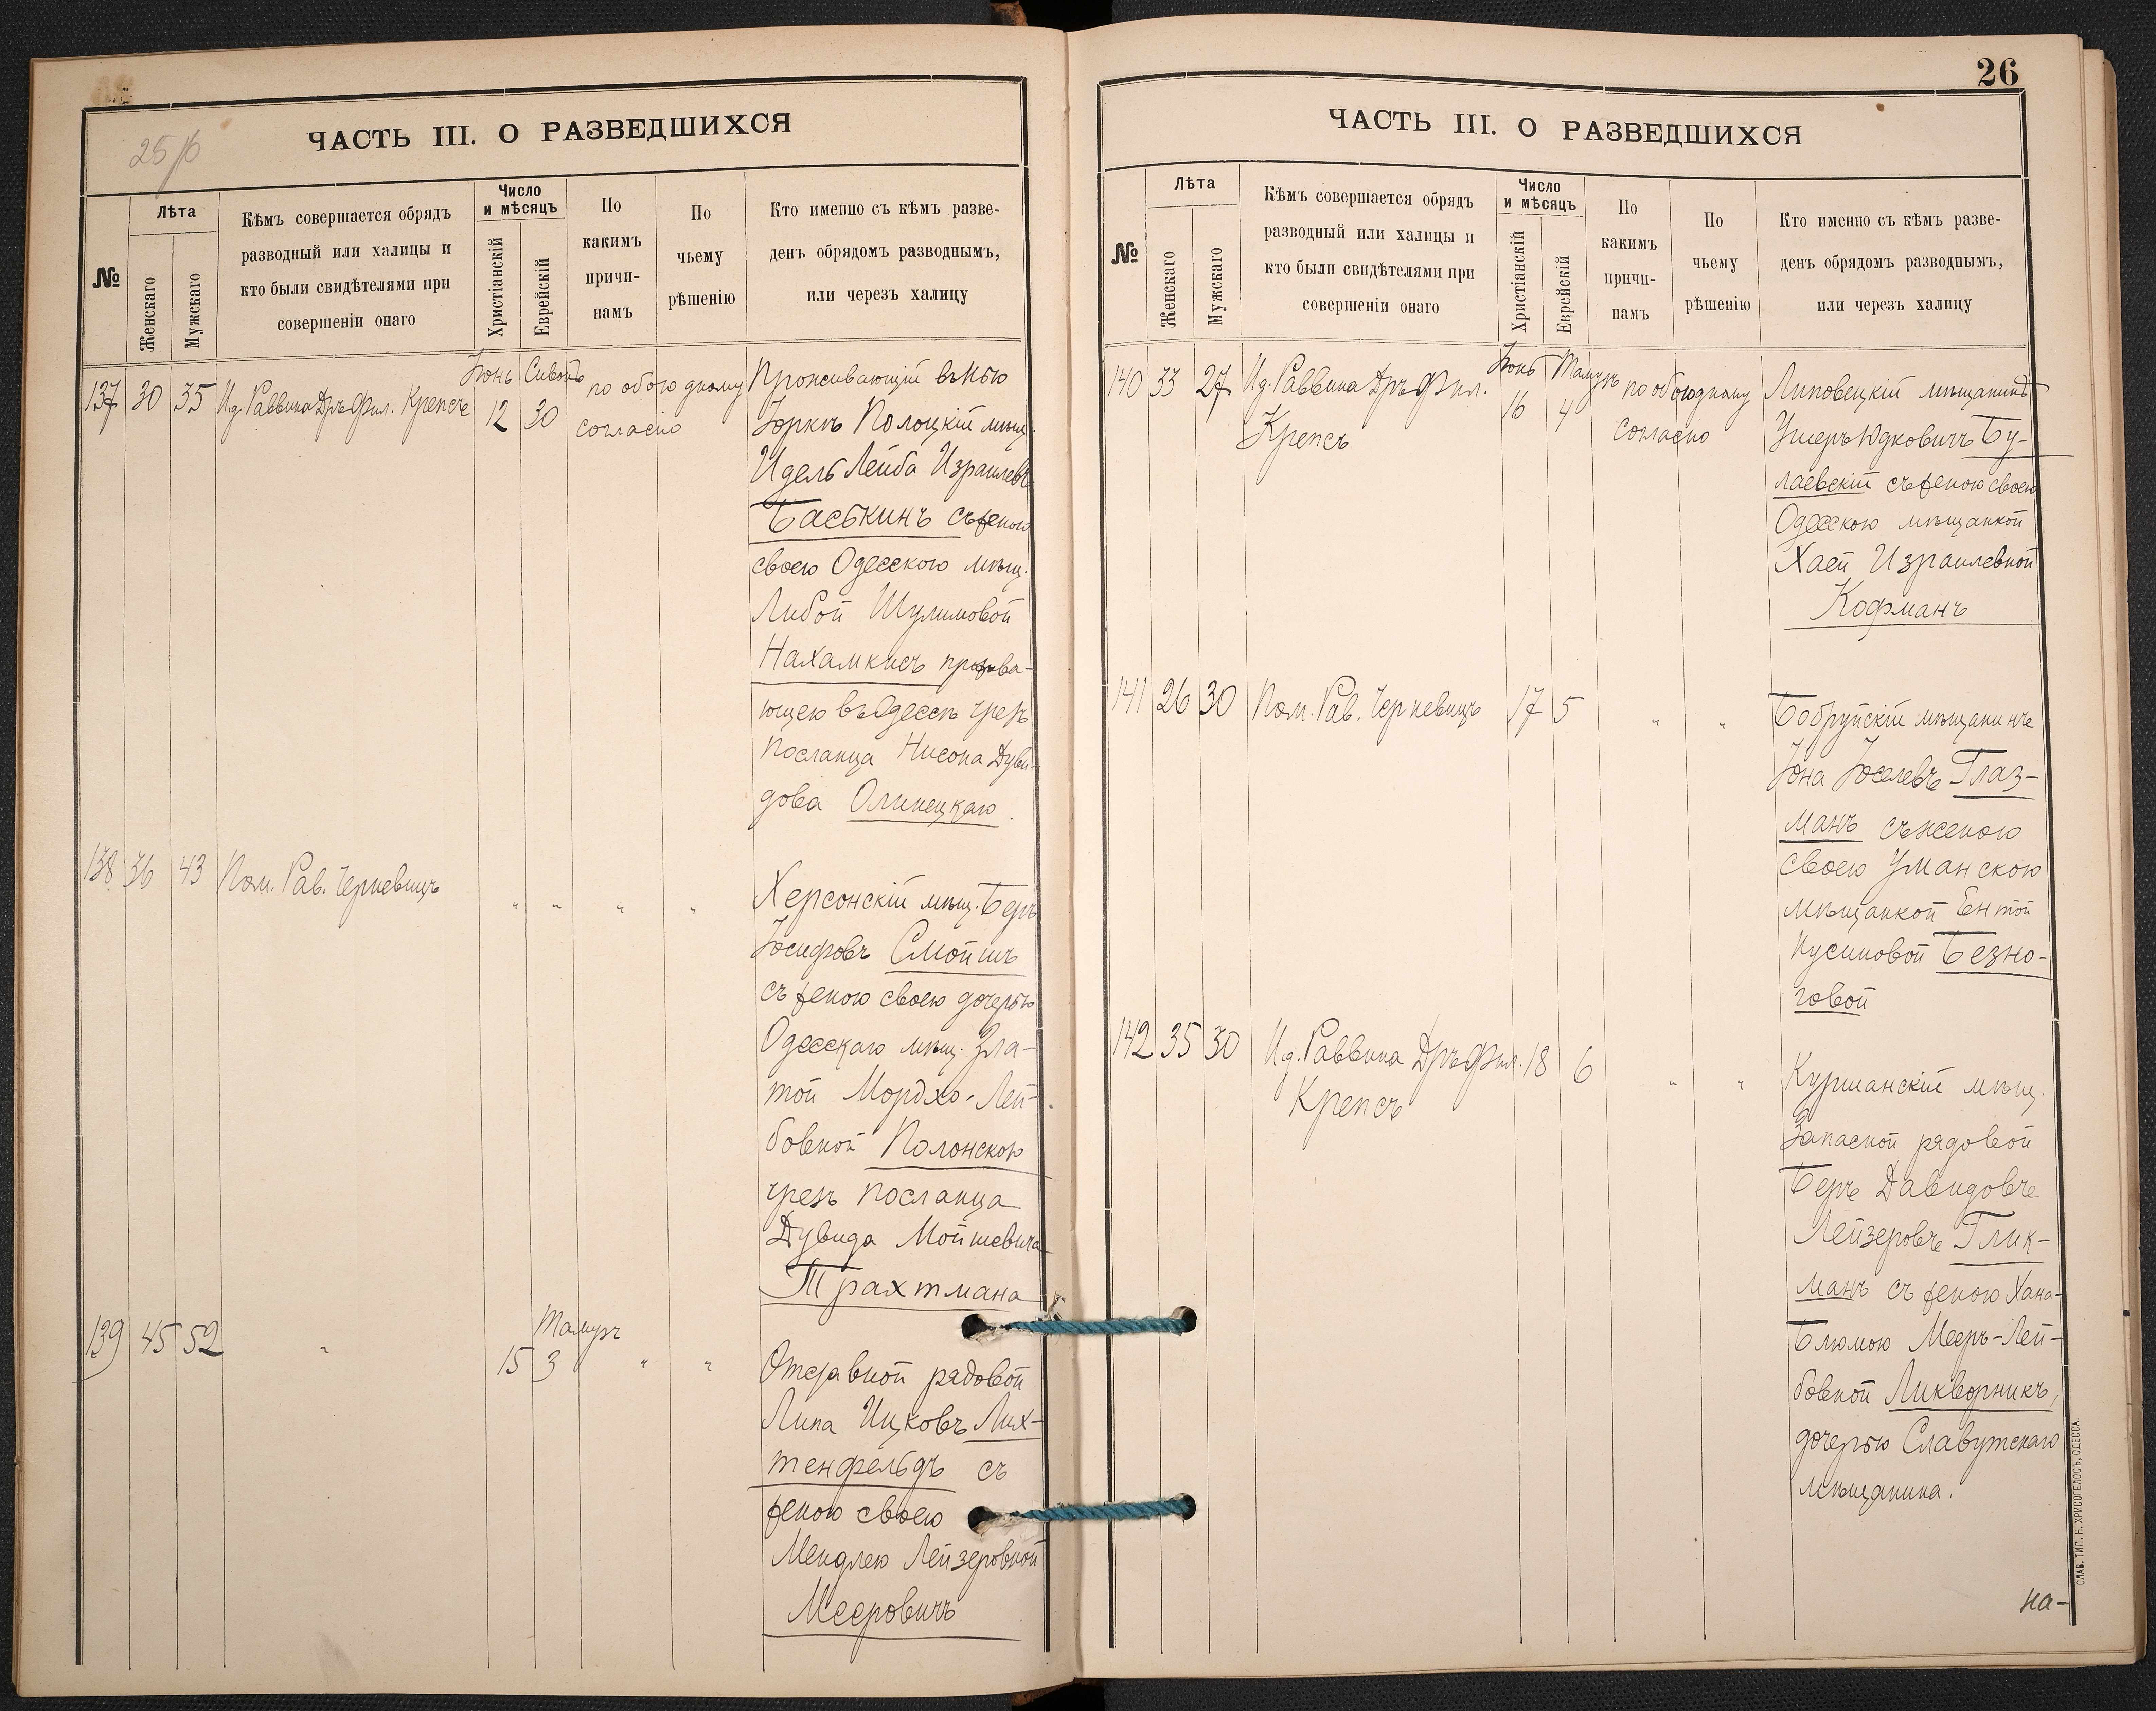 25/б
ЧАСТЬ III. О РАЗВЕДШИХСЯ
№
Лѣта
Женскаго
Мужскаго
Кѣмъ совершается обрядъ
разводный или халицы и
кто были свидѣтелями при
совершеніи онаго
Число
и мѣсяцъ
Христіанскій
Еврейскій
По
какимъ
причи-
намъ
По
чьему
рѣшенію
Кто именно съ кѣмъ разве-
денъ обрядомъ разводнымъ,
или черезъ халицу
137 30 35 И.д. Раввина Дръ Фил. Крепсъ
Іюнь 12
Сивонъ 30
по обоюдному
согласію
Проживающій въ Нью
Іоркѣ Полоцкій мѣщ.
Идель Лейба Израилевъ
Баськинъ съ женою
своею Одесского мѣщ.
Либой Шулимовой
Нахамкисъ прожива-
ющею въ Одессѣ чрезъ
посланца Нисона Дуви-
дова Олинецкаго.
138 36 43 Пом. Рав. Черневицъ " " " "
Херсонскій мѣщ. Беръ
Іосифовъ Смойшъ
съ женою своею дочерью
Одесскаго мѣщ. Зла-
той Мордхо-Лей-
бовной Полонскою
чрезъ посланца
Дувида Мойшевича
Трахтмана
139 45 52 "
15
Тамузъ
3 " "
Отставной рядовой
Липа Ицковъ Лих-
тенфельдъ съ
женою своею
Мендлею Лейзеровной
Мееровичъ
26
ЧАСТЬ III. О РАЗВЕДШИХСЯ
№
Лѣта
Женскаго
Мужскаго
Кѣмъ совершается обрядъ
разводный или халицы и
кто были свидѣтелями при
совершеніи онаго
Число
и мѣсяцъ
Христіанскій
Еврейскій
По
какимъ
причи-
намъ
По
чьему
рѣшенію
Кто именно съ кѣмъ разве-
денъ обрядомъ разводнымъ,
или черезъ халицу
140 33 27 И.д. Раввина Дръ Фил.
Крепсъ
Іюнь 16
Тамузъ 4
по обоюдному
согласію
Липовецкій мѣщанинъ
Ушеръ Юдковичъ Бу-
лаевскій съ женою своею
Одесскою мѣщанкой
Хаей Израилевной
Кофманъ
141 26 30 Пом. Рав. Черневицъ 17 5 " "
Бобруйскій мѣщанинъ
Іона Іоселевъ Глаз-
манъ съ женою
своею Уманскою
мѣщанкой Ентой
Нусиновой Безно-
говой
142 35 30 И.д. Раввина Дръ Фил. 18 6 " "
Крепсъ
Куршанскій мѣщ.
Запасной рядовой
Беръ Давидовъ
Лейзеровъ Глик-
манъ съ женою Хана-
Блюмою Мееръ-Лей-
бовной Ликворникъ,
дочерью Славутскаго
мѣщанина.
на-
СЛАВ. ТИП. Н. ХРИСОГЕЛОСЪ, ОДЕССА.